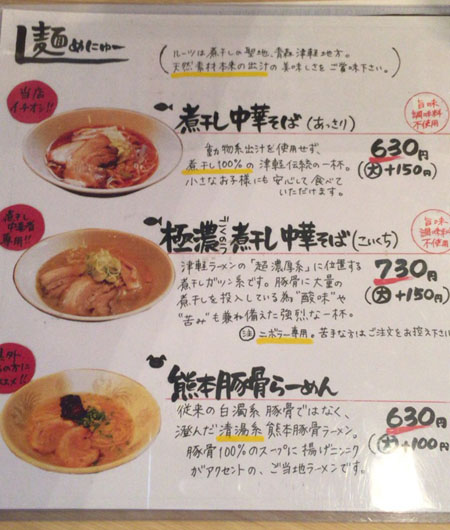 麺めにゅー
ルーツは煮干しの聖地、青森 津軽地方。
天然素材本来の出汁の美味しさをご賞味下さい。
当店
イチオシ!!
煮干し中華そば(あっさり)
旨味
調味料
不使用
動物系出汁を使用せず、
煮干し100%の津軽伝統の一杯。
小さなお子様にも安心して食べて
いただけます。
630円
(大+150円)
煮干し
中毒者
専用!!
極濃煮干し中華そば(こいくち)
ごくのう
旨味
調味料
不使用
津軽ラーメンの「超濃厚系」に位置する
煮干しガッツン系です。豚骨に大量の
煮干しを投入している為"酸味"や
"苦み"も兼ね備えた強烈な一杯。
730円
(大+150円)
注 ニボラー専用。苦手な方はご注文をお控え下さい
熊本豚骨らーめん
従来の白濁系豚骨ではなく、
澄んだ清湯系熊本豚骨ラーメン。
豚骨100%のスープに揚げニンニク
がアクセントの、ご当地ラーメンです。
630円
(大+100円)